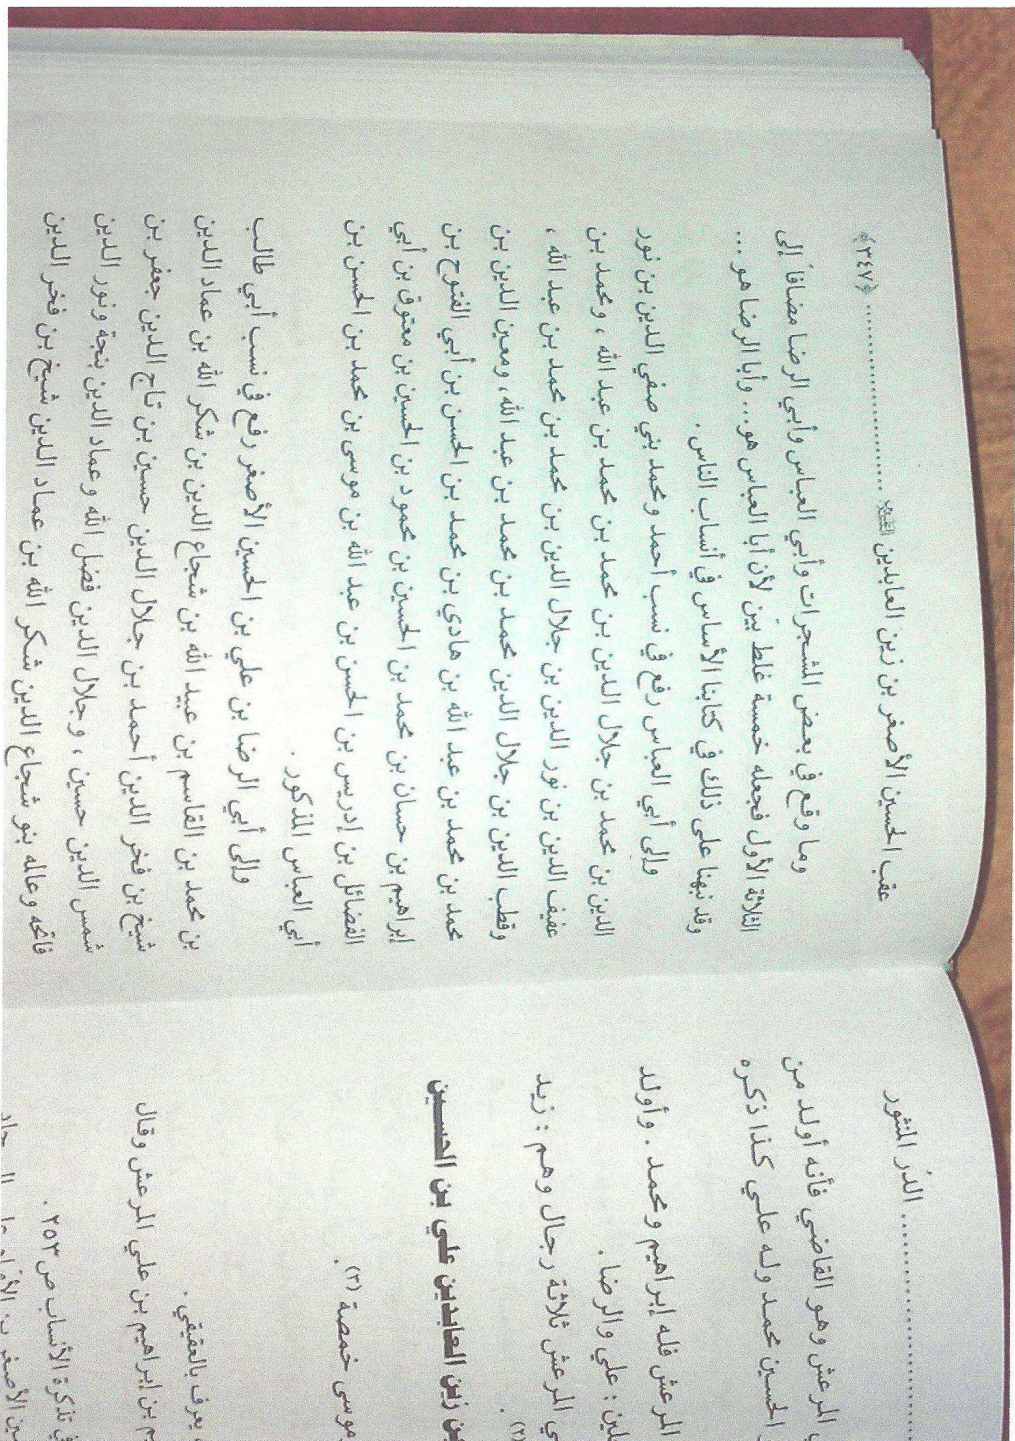 عقب الحسين الأصغر بن زين العابدين ........................ ﴿٣٤٧﴾
وما وقع في بعض المشجرات وأبي العباس وأبي الرضا مضافاً إلى
الثلاثة الأول فجعله خمسة غلط بيّن لأن أبا العباس هو... وأبا الرضا هو ...
وقد نبهنا على ذلك في كتابنا الأساس في أنساب الناس .
وإلى أبي العباس رفع في نسب أحمد ومحمد بني صفي الدين بن نور
الدين بن محمد بن جلال الدين بن محمد بن محمد بن عبد الله ، ومحمد بن
عفيف الدين بن نور الدين بن جلال الدين بن محمد بن محمد بن عبد الله ،
وقطب الدين بن جلال الدين محمد بن محمد بن عبد الله، ومعين الدين بن
محمد بن محمد بن عبد الله بن هادي بن محمد بن الحسن بن أبي الفتوح بن
إبراهيم بن حسان بن محمد بن الحسين بن محمود بن الحسين بن معتوق بن أبي
الفضائل بن إدريس بن الحسن بن عبد الله بن موسى بن محمد بن الحسن بن
أبي العباس المذكور .
وإلى أبي الرضا بن علي بن الحسين الأصغر رفع في نسب أبي طالب
بن محمد بن القاسم بن عبيد الله بن شجاع الدين بن شكر الله بن عماد الدين
شيخ بن فخر الدين أحمد بن جلال الدين حسين بن تاج الدين جعفر بن
شمس الدين حسين ، وجلال الدين فضل الله وعماد الدين بنجة ونور الدين
فاتحه وعاله بنو شجاع الدين شكر الله بن عماد الدين شيخ بن فخر الدين
الدر المنثور ........................
المرعش وهو القاضي فأنه أولد من
الحسين محمد وله علي كذا ذكره
المرعش فله إبراهيم ومحمد . وأولد
: علي والرضا .
المرعش ثلاثة رجال وهم : زيد
(٢) .
بن زين العابدين علي بن الحسين
وموسى خمصة (٣) .
يعرف بالعقيقي .
بن إبراهيم بن علي المرعش وقال
في تذكرة الأنساب ص ٢٥٣ .